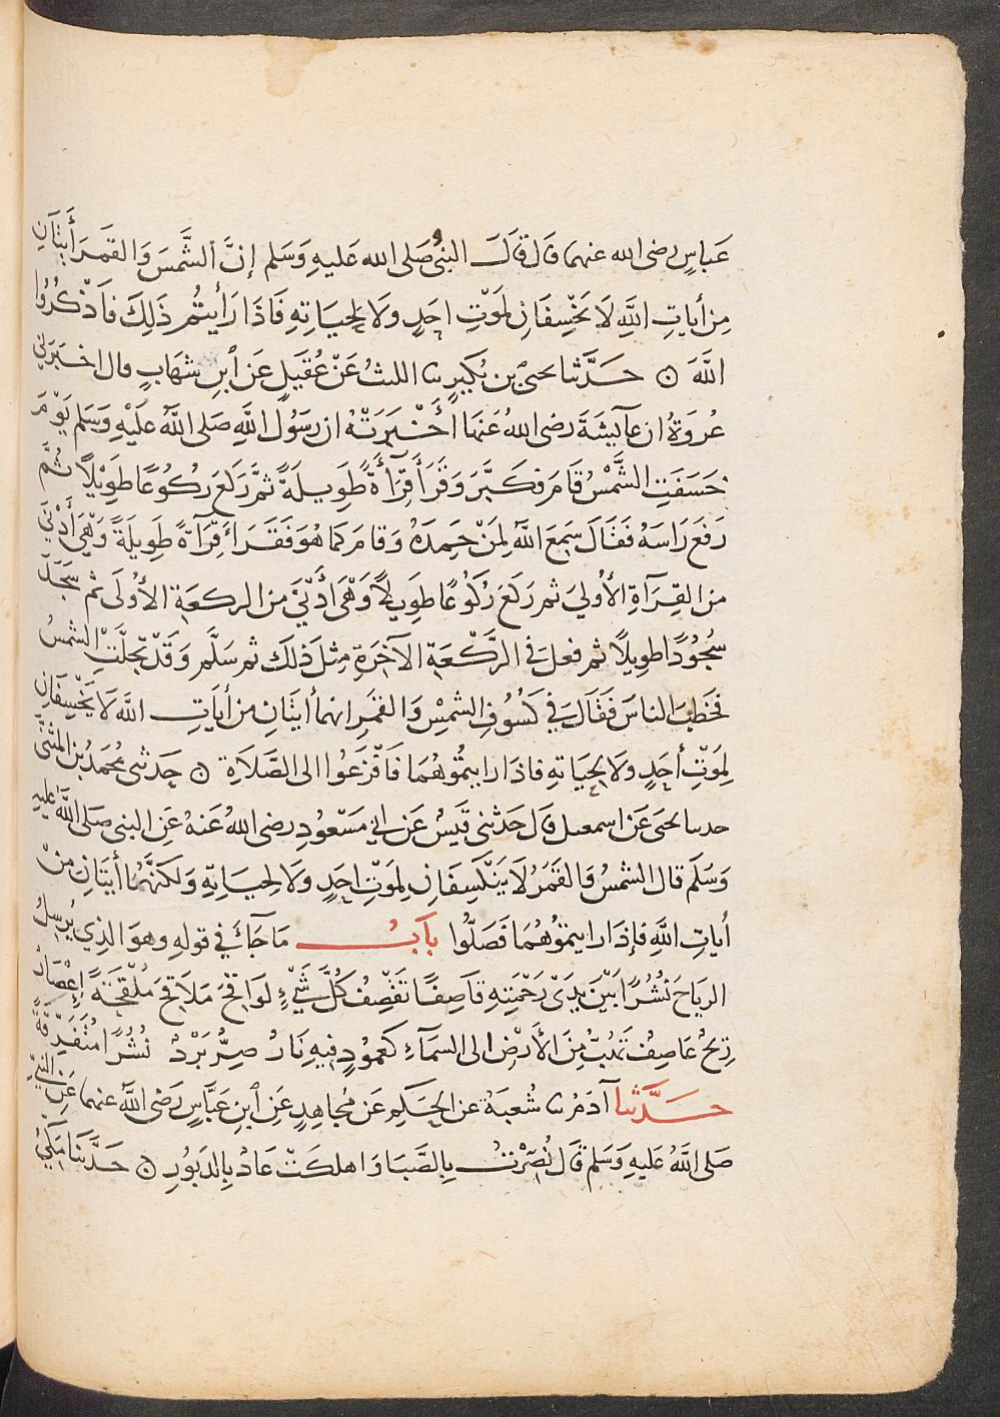 عَباسٍ رضى الله عنهما قال قَالَ النبىُّ صَلى الله عَليهِ وَسَلم إنَّ الشَّمسَ وَالقمَرَ أيتَانِ
مِن أياتِ اللَّهِ لَا يَخْسِفَانِ لمَوْتِ احَدٍ ولَا لِحيَاتِهِ فَاذَا رَأيتُم ذلِكَ فاَذْكُرُوا
اللَّهَ ۞ حَدَّثنا يحيىٰ بن بُكَيرٍ نا الليثُ عَنْ عُقَيلٍ عَن ابْنِ شهَابٍ قال اخبَرَنى
عُروَةُ ان عَآيشَةَ رضى اللهُ عَنهَا أخْبَرَتْهُ ان رَسُولَ اللَّهِ صَلى اللَّهُ عَلَيْهِ وَسَلم يَوْمَ
خسَفَتِ الشَّمْسُ قامَ فَكبَّرَ وَقَرَأ قِرَأةً طَوِيلَةً ثمَّ رَكَعَ رُكُوعًا طَوِيْلًا ثُمَّ
رَفعَ رَاسَهُ فَقَالَ سَمِعَ اللَّهُ لِمَنْ حَمِدَهُ وَقامَ كمَا هُوَ فَقَرَاءَ قِرَآةً طِويلَةً وَهْىَ أَدْنَى
من القِرَآةِ الأولىَ ثم رَكَعَ رُكُوعًا طوَيلًا وَهْىَ أدْنَى من الركعَةِ الأوُلَى ثم سَجَدَ
سُجُوْدًا طوِيلًا ثم فعلَ في الرَّكْعَةِ الآخرَةِ مِثلَ ذلكَ ثم سَلَّم وَقَدْ تجَلَّتِ الشمسُ
فخَطبَ الناسَ فقَالَ في كسُوُفِ الشمْسِ وَالقمَرِ انهما أيتَانِ من أيَاتِ اللَّه لَا يَخْسِفَانِ
لِمَوْتِ أحَدٍ ولَا لِحيَاتهِ فاذا رايتموُهُمَا فَافْزَعُوا الى الصَّلاَةِ ۞ حَدثنى مُحَمدُ بن المثنَّى
حدثنا يحيىَ عَن اسمعيل قال حَدثنى قَيسُ عَن ابي مَسْعُودٍ رضى اللهُ عَنهُ عَنِ النبى صَلى اللَّهُ عليهِ
وَسَلَم قال الشمسُ وَالقَمَرُ لَا يَنْكَسِفَانِ لِمَوْتِ احَدٍ ولَا لِحيَاتِهِ وَلكنَّهُمَا أيتَانِ مِنْ
أياتِ اللَّهِ فإذَا رايتموُهُمَا فَصَلُّوا بَابُ مَا جَآئَ في قولهِ وهوَ الذِي يُرسِلُ
الريَاحَ نُشُرًا بَيْنَ يَدَىْ رَحْمَتِهِ قَاصِفًا تَقْصِفُ كُلَّ شَيْءٍ لوَاقحَ مَلَاقحَ مُلْقِحَةً إعْصَارٌ
رِيحٌ عَاصِفٌ تَهُبُّ مِنَ الأَرْضِ الى السمَآءِ كعَمُودٍ فيهِ نَارٌ صِرٌّ بَرْدٌ نُشُرًا مُتفَرِّقَةً
حدَّثنا آدَمُ نا شُعبَةُ عن الحكَمِ عَن مُجَاهِدٍ عَن ابنِ عَبَّاسٍ رَضى اللَّهُ عنهما عَنِ النبِيِّ
صَلى اللَّهُ عَليهِ وَسَلم قَال نُصِرْتُ بِالصَّبَا وَاهلكَتْ عَادٌ بِالدَّبُورِ ۞ حَدَّثنَا مَكِّيُّ